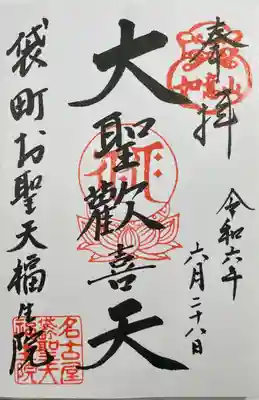 奉拝
令和六年
六月二十八日
大聖歡喜天
袋町お聖天福生院
名古屋
袋聖天
福生院